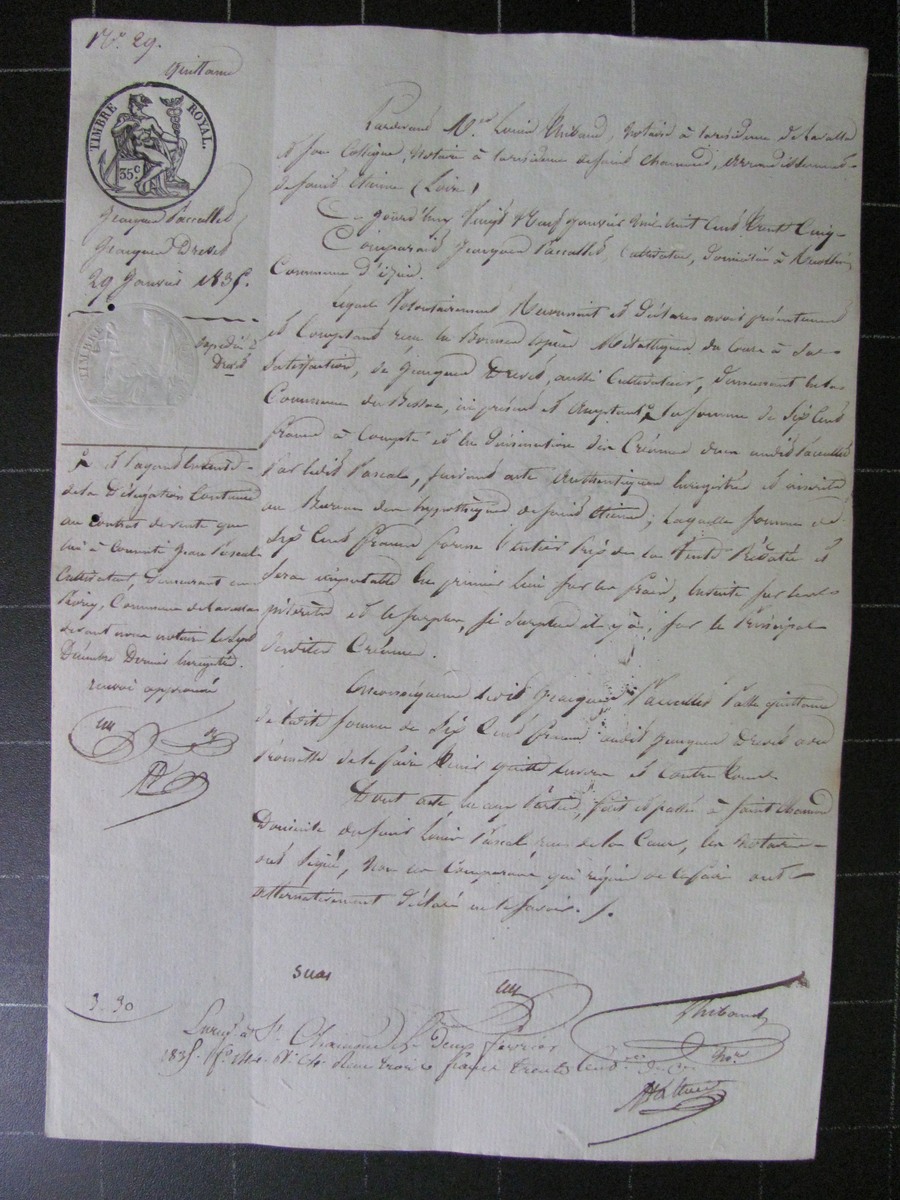 N.º 29.
quittance
TIMBRE ROYAL.
35 c
Jacques
Jacques Drevet
29 Janvier 1835.
TIMBRE
Expédié
Drevet
et agissant
de la Délégation contenue
au contrat de vente que
lui a consenti Jean Pascale
Cultivateur, Demeurant au
Commune de Lavalla
devant nous notaire le sept
Décembre Dernier Enregistré.
renvoi approuvé
Pardevant M.re Louis Thibaud, Notaire à la résidence de Lavalla
et son Collègue, Notaire à la résidence de Saint Chamond, arrondissement
de Saint Etienne (Loire)
Ce Jourd'huy Vingt Neuf Janvier Mil huit Cent Trente Cinq
Comparait Jacques Cultivateur, Domicilié à
Commune d'Izieu.
Lequel Volontairement Reconnait et Déclare avoir présentement
et Comptant reçu en Bonnes espèces Métalliques du Cours à sa
Satisfaction, de Jacques Drevet, aussi Cultivateur, demeurant
Commune du Bessac, ici présent et acceptant la somme de Six Cent
francs à Compte et en Diminution des Créances dues audit
par ledit Pascale, suivant acte authentique Enregistré et inscrit
au Bureau des hypothèques de Saint Etienne; Laquelle somme de
Six Cent francs forme l'entier Prix de la Vente Rédatée et
Sera imputable En premier lieu sur les frais, Ensuite sur les
intérêts et le surplus, si surplus il y a, sur le Principal
desdites Créances.
Conséquence ledit Jacques Passe quittance
de ladite somme de Six Cent francs audit Jacques Drevet avec
Promesse de le faire Tenir quitte Envers et Contre Tous.
Dont acte lu aux Parties, fait et passé à Saint Chamond
Domicile du sieur Louis Pascale rue de la Cour, les Notaires
ont signé, Non les Comparants qui requis de le faire ont
alternativement Déclaré ne le savoir.
3. 30
Thibaud
Nore
Enregé à St. Chamond le Deux février
1835. fo. Ro. Reçu trois francs trente Centimes